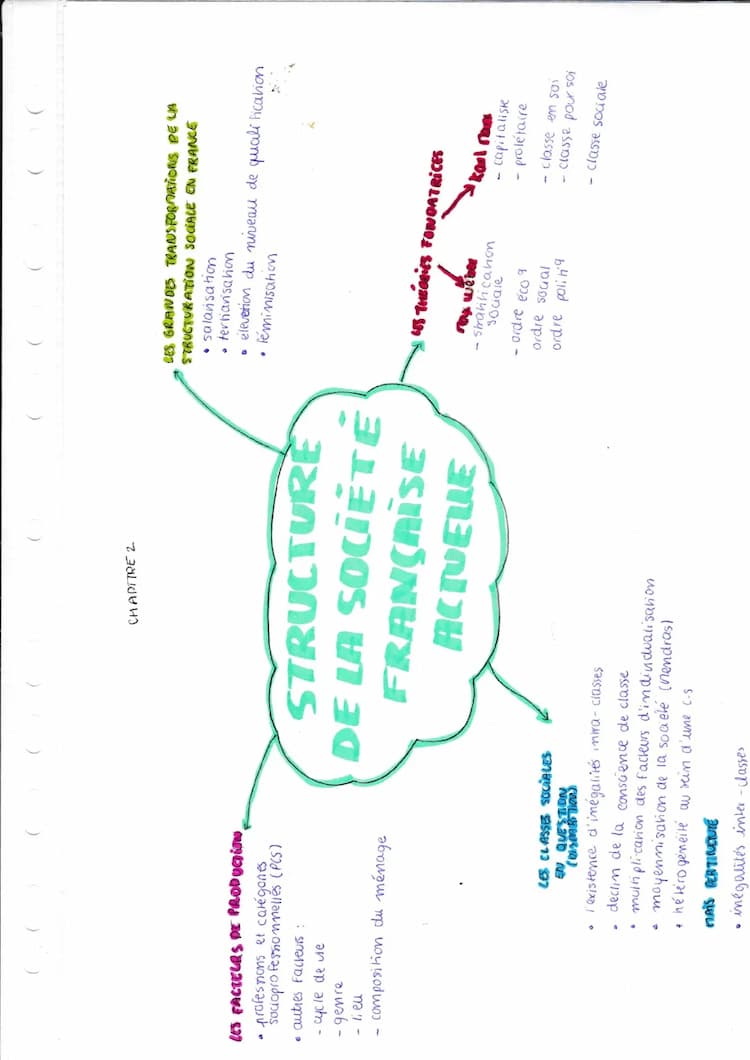 CHAPITRE 2
STRUCTURE
DE LA SOCIÉTÉ
FRANÇAISE
ACTUELLE
LES FACTEURS DE PRODUCTION
• professions et catégories
socioprofessionnelles (PCS)
• autres facteurs :
- cycle de vie
- genre
- lieu
- composition du ménage
LES GRANDES TRANSFORMATIONS DE LA
STRUCTURATION SOCIALE EN FRANCE
• salarisation
• tertiarisation
• élévation du niveau de qualification
• féminisation
LES THÉORIES FONDATRICES
Max Weber
- stratification
sociale
- ordre éco q
ordre social
ordre politiq
Karl Marx
- capitaliste
- prolétaire
- classe en soi
- classe pour soi
- classe sociale
LES CLASSES SOCIALES
EN QUESTION
• l'existence d'inégalités intra-classes
• déclin de la conscience de classe
• multiplication des facteurs d'individualisation
• moyennisation de la société (Mendras)
+ hétérogénéité au sein d'une C.S
MAIS PERTINENTE
• inégalités inter-classes